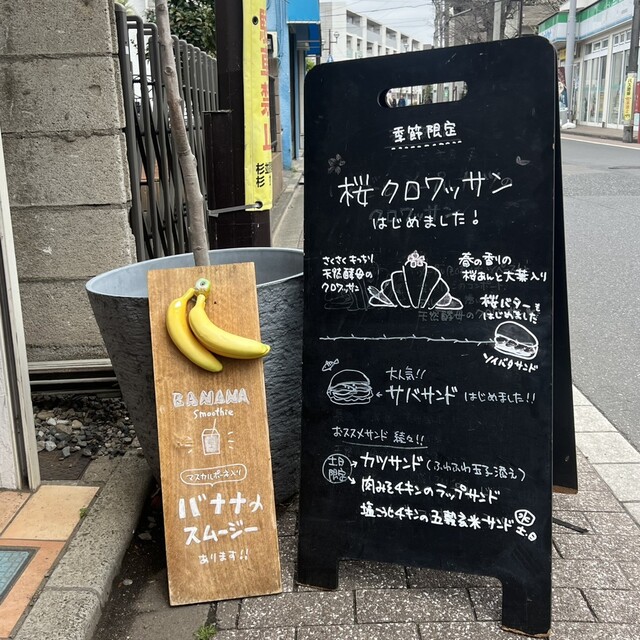 季節限定
桜クロワッサン
はじめました!
さくさくもっちり
天然酵母の
クロワッサン
春の香りの
桜あんと大葉入り
桜バターも
はじめました
ソイバタサンド
大人気!!
サバサンド はじめました!!
おススメサンド 続々!!
土日
限定
カツサンド(ふわふわ玉子添え)
肉みそチキンのラップサンド
塩こうじチキンの五穀玄米サンド
BANANA
Smoothie
マスカルポーネ入り
バナナの
スムージー
あります!!
杉
杉